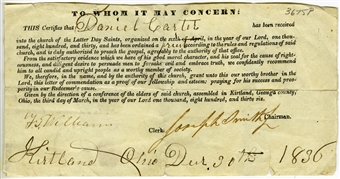 36758
TO WHOM IT MAY CONCERN:
THIS Certifies that Daniel Carter has been received
into the church of the Latter Day Saints, organized on the sixth of April, in the year of our Lord, one thou-
sand, eight hundred, and thirty, and has been ordained a according to the rules and regulations of said
church, and is duly authorized to preach the gospel, agreeably to the authority of that office.
From the satisfactory evidence which we have of his good moral character, and his zeal for the cause of right-
eousness, and diligent desire to persuade men to forsake evil and embrace truth, we confidently recommend
him to all candid and upright people as a worthy member of society.
We, therefore, in the name, and by the authority of this church, grant unto this our worthy brother in
the Lord, this letter of commendation as a proof of our fellowship and esteem: praying for his success and pros-
perity in our Redeemer's cause.
Given by the direction of a conference of the elders of said church, assembled in Kirtland, Geauga county,
Ohio, the third day of March, in the year of our Lord one thousand, eight hundred, and thirty six.
F G Williams Clerk. Joseph Smith Jr Chairman.
Kirtland Ohio Dec. 30th 1836